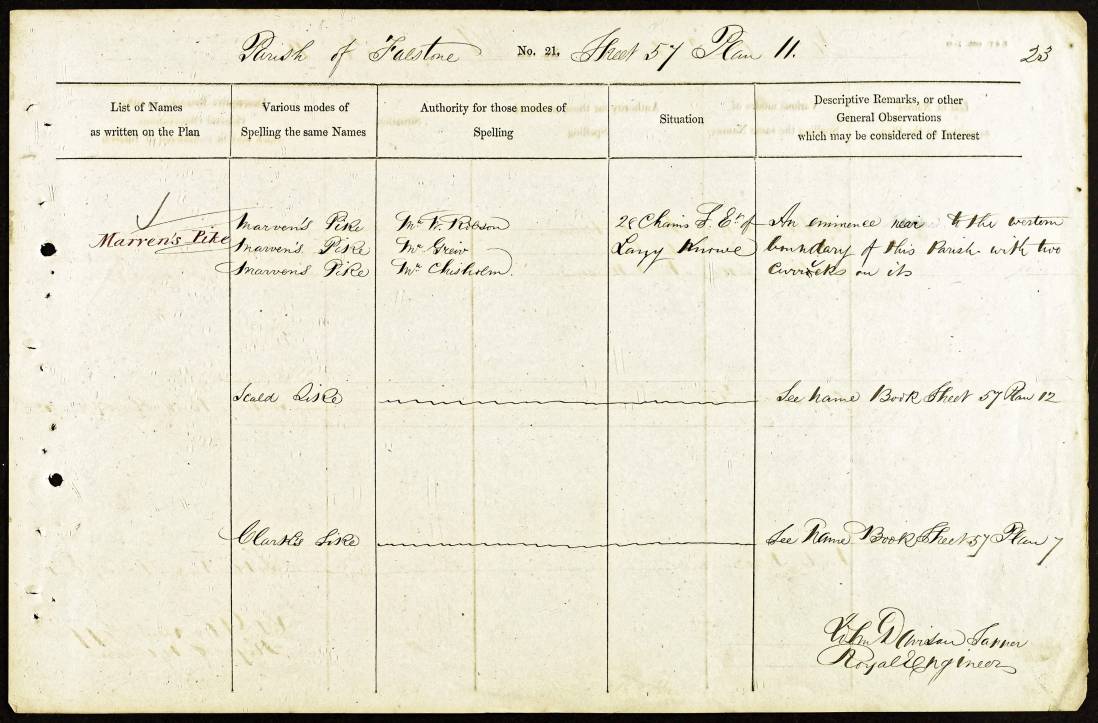 Parish of Falstone No. 21. Sheet 57 Plan 11. 23
List of Names
as written on the Plan
Various modes of
Spelling the same Names
Authority for those modes of
Spelling
Situation
Descriptive Remarks, or other
General Observations
which may be considered of Interest
Marven's Pike
Marven's Pike Mr. W. Robson 28 Chains S. Et. of An eminence near to the western
Marven's Pike Mr. Greiv Largy Knowe boundary of this Parish with two
Marven's Pike Mr. Chisholm. Curricks on its
Scald Sike See Name Book Sheet 57 Plan 12
Clark's Sike See Name Book Sheet 57 Plan 7
John Davison Sapper
Royal Engineers